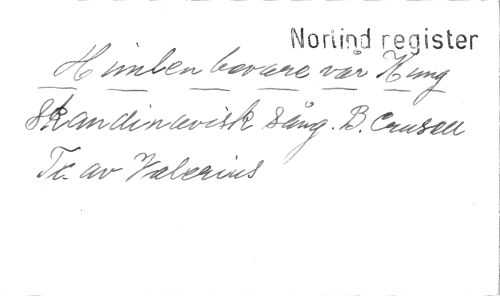 Norlind register
Himlen bevare vår Kung
Skandinavisk Sång. B. Crusell
Tc. av Valerius